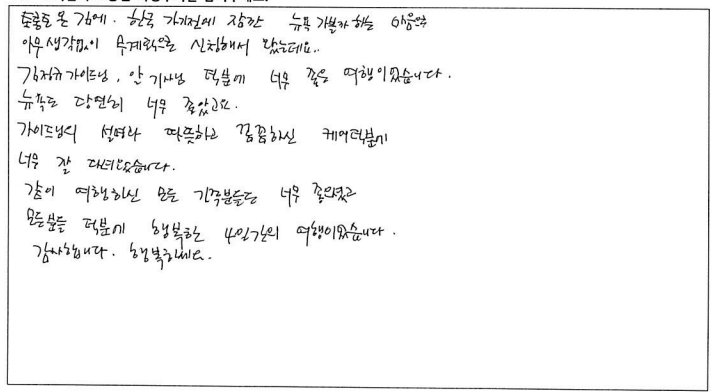 토론토 온 김에. 한국 가기전에 잠깐 뉴욕 가볼까 하는 마음으로
아무생각없이 무계획으로 신청해서 왔는데요..
김정규가이드님, 안기사님 덕분에 너무 좋은 여행이었습니다.
뉴욕도 당연히 너무 좋았고요.
가이드님의 설명과 따뜻하고 꼼꼼하신 케어덕분에
너무 잘 다녀왔습니다.
같이 여행하신 모든 가족분들도 너무 좋으셨고
모든분들 덕분에 행복한 4일간의 여행이었습니다.
감사합니다. 행복하세요.